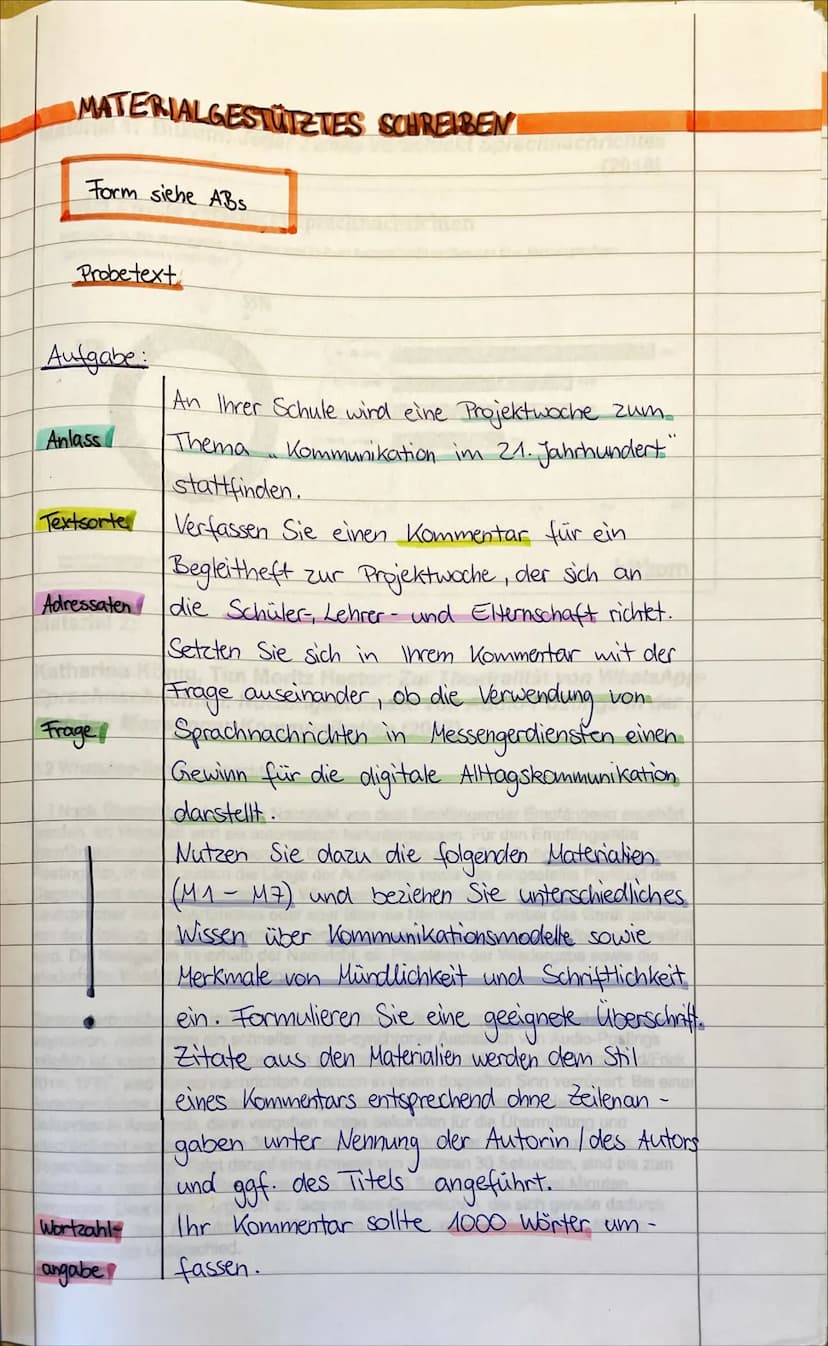 MATERIALGESTÜTZTES SCHREIBEN
Form siehe ABs
Probetext
Aufgabe:
An Ihrer Schule wird eine Projektwoche zum
Anlass
Thema „Kommunikation im 21. Jahrhundert"
stattfinden.
Textsorte
Verfassen Sie einen Kommentar für ein
Begleitheft zur Projektwoche, der sich an
Adressaten
die Schüler-, Lehrer- und Elternschaft richtet.
Setzten Sie sich in Ihrem Kommentar mit der
Frage auseinander, ob die Verwendung von
Frage
Sprachnachrichten in Messengerdiensten einen
Gewinn für die digitale Alltagskommunikation
darstellt.
Nutzen Sie dazu die folgenden Materialien
(M1 - M7) und beziehen Sie unterschiedliches
Wissen über Kommunikationsmodelle sowie
Merkmale von Mündlichkeit und Schriftlichkeit
ein. Formulieren Sie eine geeignete Überschrift.
Zitate aus den Materialien werden dem Stil
eines Kommentars entsprechend ohne Zeilenan-
gaben unter Nennung der Autorin / des Autors
und ggf. des Titels angeführt.
Wortzahl-
Ihr Kommentar sollte 1000 Wörter um-
angabe
fassen.